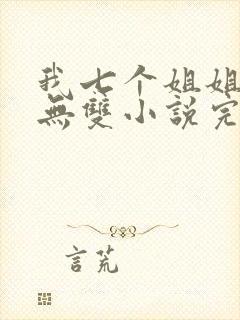 我七个姐姐
無雙小說完
言荒